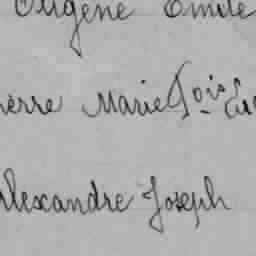 Eugène Emile
Pierre Marie Fois Eu
Alexandre Joseph